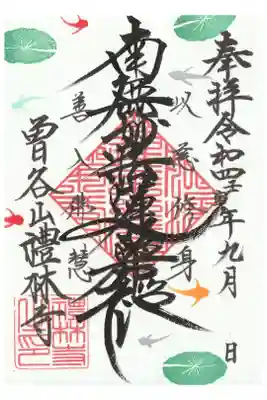 奉拝 令和四壬寅年九月 日
以慈修身
南無妙法蓮華経
善入佛慧
曽谷山禮林寺